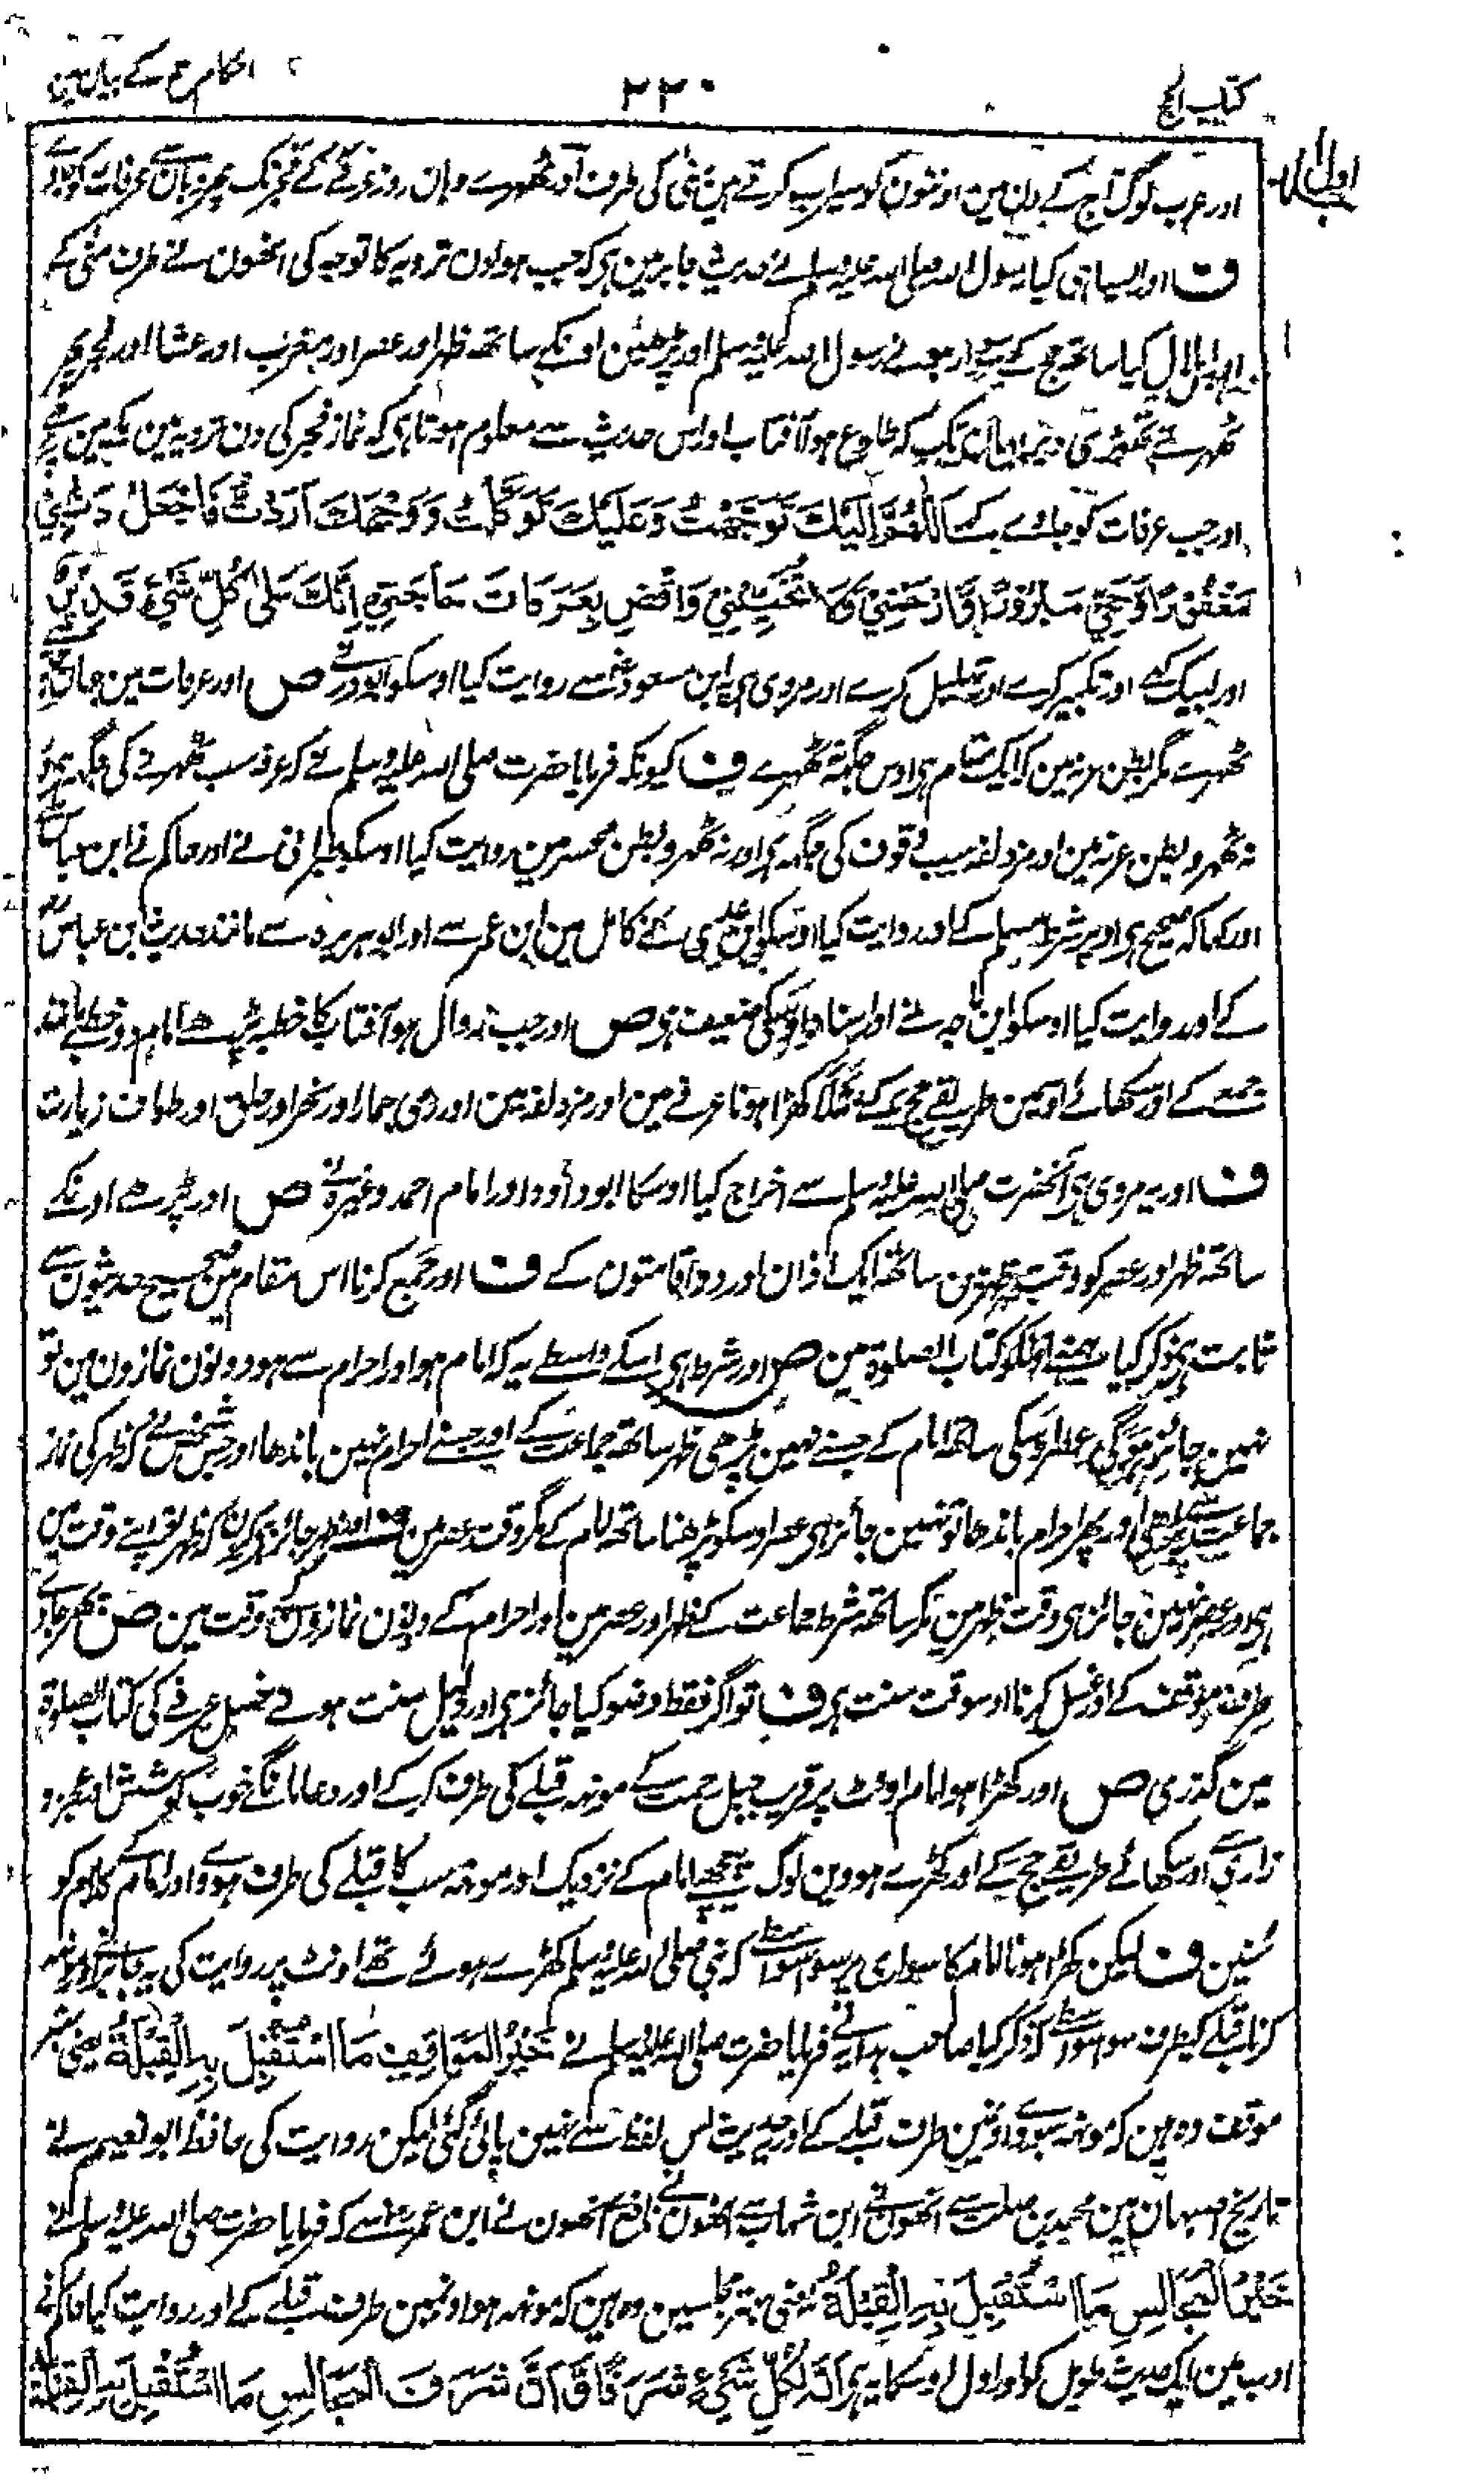 کتاب الحج
۲۲۰
احکام حج کے بیان مین
اور عرب لوگ آج کے دن مین اونٹون کو سیراب کرتے ہین منٰی کی طرف اور ٹھہرے وہان روز عرفے کے فجر تک پھر وہان سے عرفات کو جاوے
ف اور ایسا ہی کیا رسول اللہ صلی اللہ علیہ وسلم نے حدیث جابر مین ہی کہ جب ہوا دن ترویہ کا توجہ کی انھون نے طرف منٰی کے
اہلال کیا ساتھ حج کے سوار ہوئے رسول اللہ صلی اللہ علیہ وسلم اور پڑھین اونکے ساتھ ظہر اور عصر اور مغرب اور عشا اور فجر پھر
ٹھہرے تھوڑی دیر یہان تک کہ طلوع ہوا آفتاب اور اس حدیث سے معلوم ہوتا ہی کہ نماز فجر کی دن ترویہ مین مکے مین پڑھے
اور جب عرفات کو جاوے کہے اَللّٰهُمَّ اِلَیْكَ تَوَجَّهْتُ وَعَلَیْكَ تَوَكَّلْتُ وَوَجْهَكَ اَرَدْتُّ فَاجْعَلْ ذَنْۢبِیْ
مَغْفُوْرًا وَّحَجِّیْ مَبْرُوْرًا وَّارْحَمْنِیْ وَلَا تُخَیِّبْنِیْ وَاقْضِ بِعَرَفَاتَ حَاجَتِیْ اِنَّكَ عَلٰی كُلِّ شَیْءٍ قَدِیْرٌ
اور لبیک کہے اور تکبیر کرے اور تہلیل کرے اور مروی ہی یہ ابن مسعودؓ سے روایت کیا اوسکو ابوذر نے ص اور عرفات مین جہان چاہے
ٹھہرے مگر بطن عرنہ مین کہ ایک مقام ہی اوس جگہ نہ ٹھہرے ف کیونکہ فرمایا حضرت صلی اللہ علیہ وسلم نے کہ عرفہ سب ٹھہرنے کی جگہ ہی اور
نہ ٹھہرو بطن عرنہ مین اور مزدلفہ سب وقوف کی جگہ ہی اور نہ ٹھہرو بطن محسر مین روایت کیا اوسکو طبرانی نے اور حاکم نے ابن عباسؓ
اور کہا کہ صحیح ہی اوپر شرط مسلم کے اور روایت کیا اوسکو ابن عدی نے کامل مین ابن عمر سے اور ابو ہریرہ سے مانند حدیث ابن عباسؓ
کے اور روایت کیا اوسکو ابن ماجہ نے اور اسناد اوسکی ضعیف ہی ص اور جب زوال ہو آفتاب کا خطبہ پڑھے امام دو خطبے مانند
جمعے کے اور سکھائے اوسمین طریقے حج کے مثلاً کھڑا ہونا عرفے مین اور مزدلفہ مین اور رمی جمار اور نحر اور حلق اور طواف زیارت
ف اور یہ مروی ہی آنحضرت صلی اللہ علیہ وسلم سے اخراج کیا اوسکا ابو داؤد اور امام احمد وغیرہ نے ص اور پڑھے اونکے
ساتھ ظہر اور عصر کو وقت ظہر مین ساتھ ایک اذان اور دو اقامتون کے ف اور جمع کرنا اس مقام مین صحیح حدیثون سے
ثابت ہی ذکر کیا ہمنے اونکو کتاب الصلوۃ مین ص اور شرط ہی اسکے واسطے یہ کہ امام ہو اور احرام سے ہو دونون نمازون مین تو
نہین جائز ہوگی عصر اوسکی ساتھ امام کے جسنے نہین پڑھی ظہر ساتھ جماعت کے اور جسنے احرام نہین باندھا اور جس شخص نے کہ ظہر کی نماز
جماعت سے پڑھی اور پھر احرام باندھا تو نہین جائز ہی عصر اوسکو پڑھنا ساتھ امام کے مگر وقت عصر مین اور ظہر جائز ہی کیونکہ ظہر تو اپنے وقت مین
ہی اور عصر نہین جائز ہی وقت ظہر مین مگر ساتھ شرط جماعت کے ظہر اور عصر مین اور احرام کے دونون نمازون کے وقت مین ص پھر جاوے
طرف موقف کے اور غسل کرنا اوسوقت سنت ہی ف تو اگر فقط وضو کیا جائز ہی اور دلیل سنت ہونے غسل عرفے کی کتاب الصلوۃ
مین گذری ص اور کھڑا ہو امام اونٹ پر قریب جبل رحمت کے مونہہ قبلے کی طرف کرکے اور دعا مانگے خوب کوشش اور عجز و
زاری سے اور سکھائے طریقے حج کے اور کھڑے ہووین لوگ پیچھے امام کے نزدیک اور مونہہ سب کا قبلے کی طرف ہووے اور امام کے کلام کو
سُنین ف لیکن کھڑا ہونا امام کا سواری پر سو اسواسطے کہ نبی صلی اللہ علیہ وسلم کھڑے ہوئے تھے اونٹ پر روایت کی یہ جابرؓ نے اور مونہہ
کرنا قبلے کیطرف سو اسواسطے کہ ذکر کیا صاحب ہدایہ نے فرمایا حضرت صلی اللہ علیہ وسلم نے خَیْرُ الْمَوَاقِفِ مَا اسْتُقْبِلَ بِهِ الْقِبْلَةُ یعنی بہتر
موقف وہ ہین کہ مونہہ ہووے اونمین طرف قبلے کے اور یہ حدیث اس لفظ سے نہین پائی گئی لیکن روایت کی حافظ ابو نعیم نے
تاریخ اصبہان مین محمد بن صلت سے انھون نے ابن شہاب سے انھون نے نافع سے انھون نے ابن عمرؓ سے کہ فرمایا حضرت صلی اللہ علیہ وسلم نے
خَیْرُ الْمَجَالِسِ مَا اسْتُقْبِلَ بِهِ الْقِبْلَةُ یعنی بہتر مجلسین وہ ہین کہ مونہہ ہو اونمین طرف قبلے کے اور روایت کیا حاکم نے
ادب مین ایک حدیث طویل کو اور اول اوسکا یہ ہی اِنَّ لِكُلِّ شَیْءٍ شَرَفًا وَّاِنَّ شَرَفَ الْمَجَالِسِ مَا اسْتُقْبِلَ بِهِ الْقِبْلَةُ